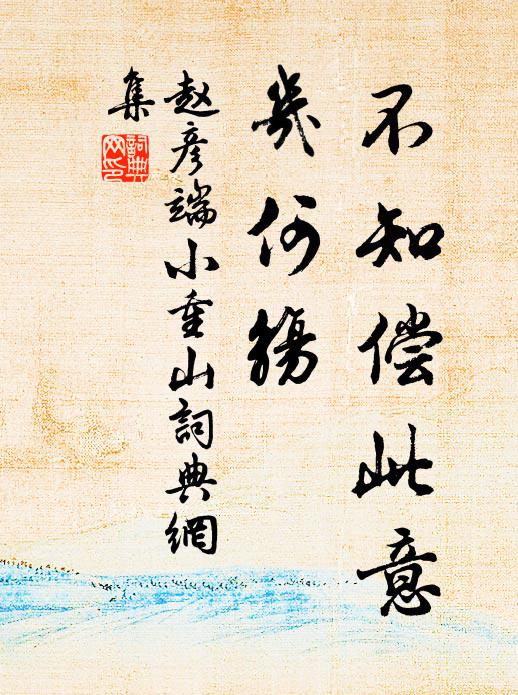 不知偿此意
幾何觴
赵彦端小重山詞典網
集
詞典
网印